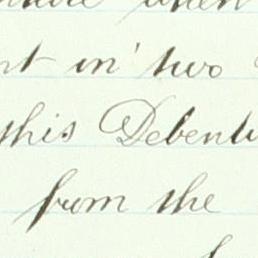 in two
this Debentu
from the